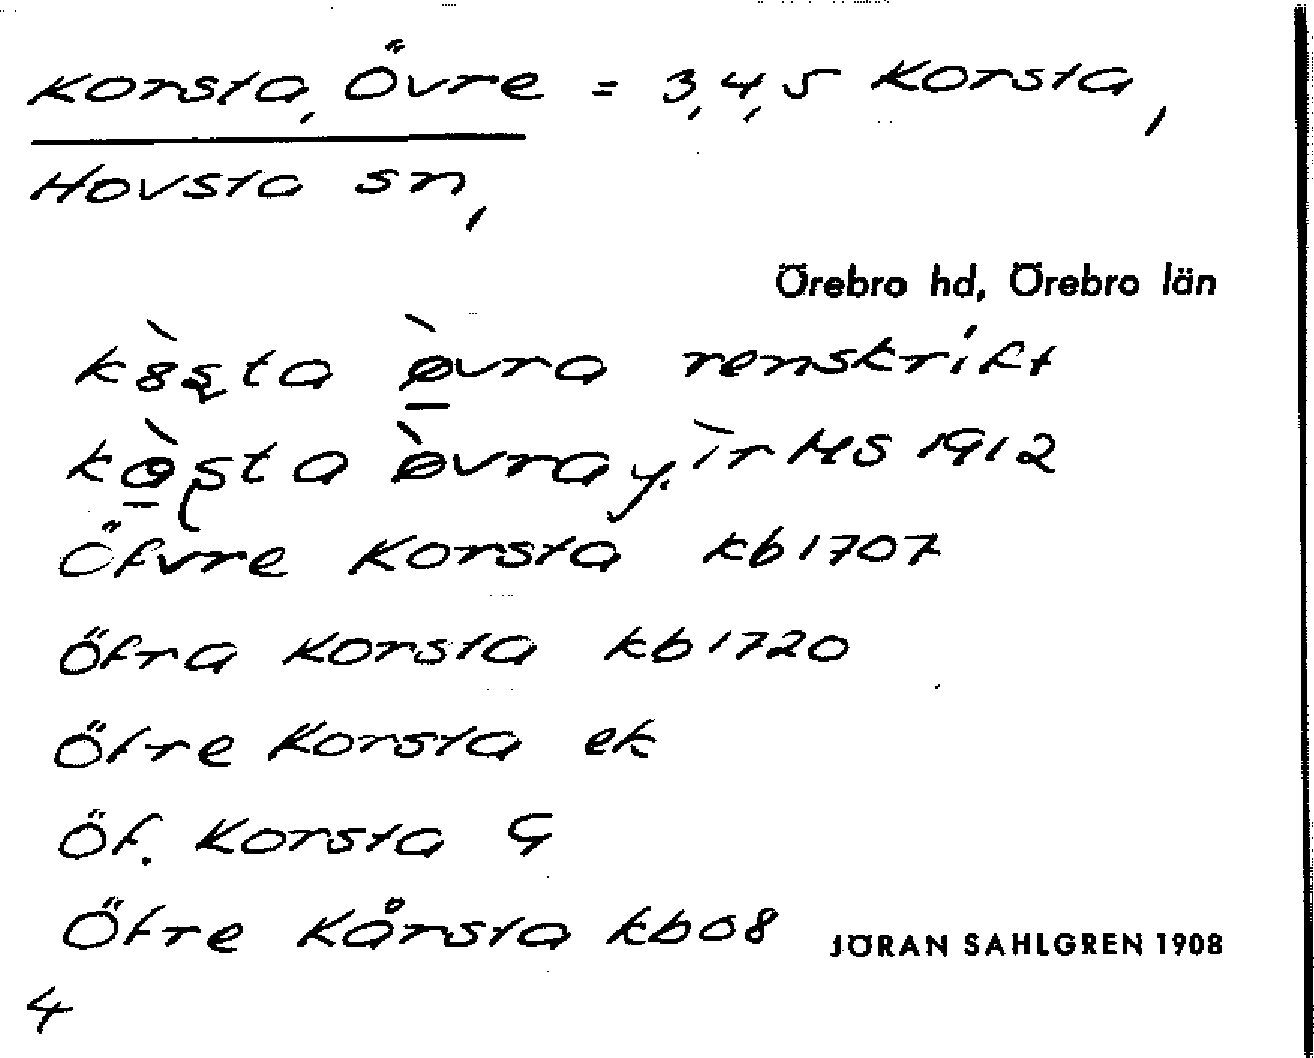 Korsta, Övre = 3, 4, 5 Korsta,
Hovsta sn,
Örebro hd, Örebro län
renskrift
HS 1912
Öfvre Korsta kb 1707
Öfra Korsta kb 1720
Öfre Korsta ek
Öf. Korsta G
Öfre Kårsta kb 08
JÖRAN SAHLGREN 1908
4